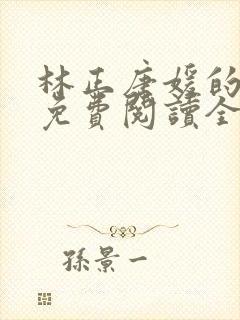 林正唐媛的
免費閱讀全
孫景一